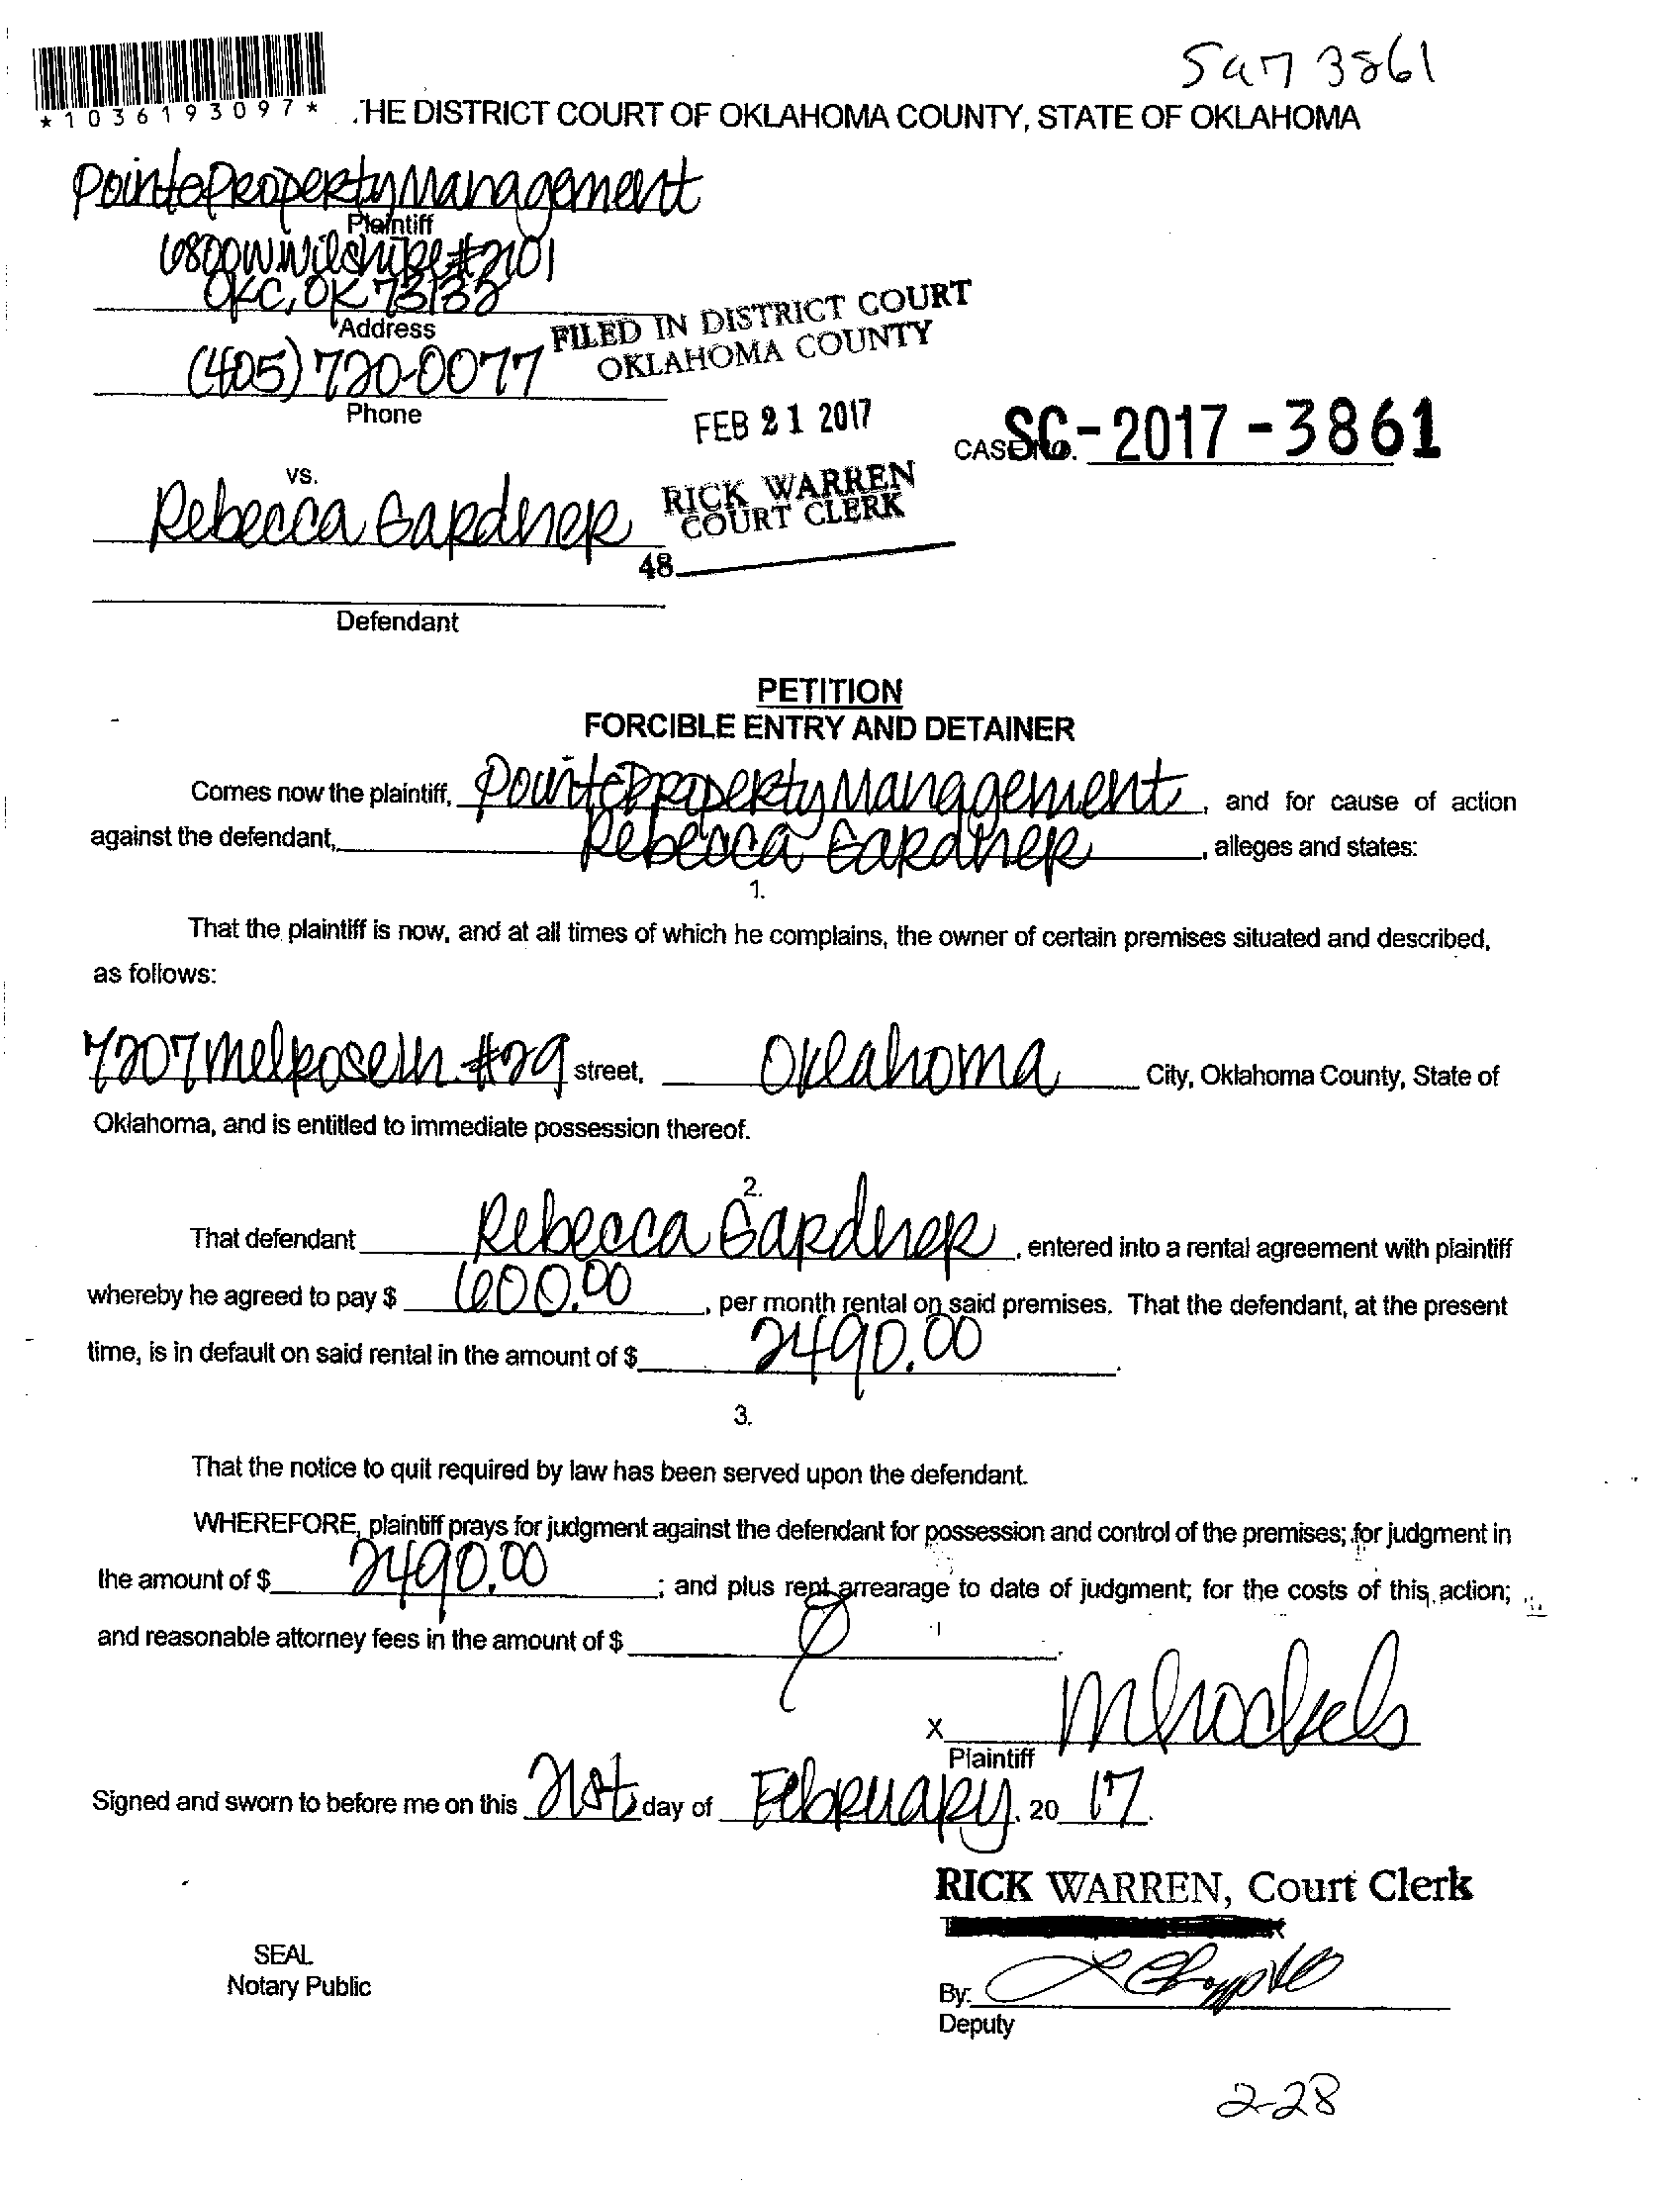 3861
*1036193097*
.HE DISTRICT COURT OF OKLAHOMA COUNTY, STATE OF OKLAHOMA
Pointe Property Management
Plaintiff
6800 W Wilshire #2101
OKC, OK 73132
Address
FILED IN DISTRICT COURT
OKLAHOMA COUNTY
(405) 720-0077
Phone
FEB 21 2017
CASE NO. SC-2017-3861
vs.
Rebecca Gardner
RICK WARREN
COURT CLERK
48
Defendant
PETITION
FORCIBLE ENTRY AND DETAINER
Comes now the plaintiff, Pointe Property Management, and for cause of action
against the defendant, Rebecca Gardner, alleges and states:
1.
That the plaintiff is now, and at all times of which he complains, the owner of certain premises situated and described,
as follows:
7207 Melrose Ln. #29 street, Oklahoma City, Oklahoma County, State of
Oklahoma, and is entitled to immediate possession thereof.
2.
That defendant Rebecca Gardner, entered into a rental agreement with plaintiff
whereby he agreed to pay $ 600.00, per month rental on said premises. That the defendant, at the present
time, is in default on said rental in the amount of $ 2490.00.
3.
That the notice to quit required by law has been served upon the defendant.
WHEREFORE, plaintiff prays for judgment against the defendant for possession and control of the premises; for judgment in
the amount of $ 2490.00; and plus rent arrearage to date of judgment; for the costs of this action;
and reasonable attorney fees in the amount of $
X
Plaintiff
Signed and sworn to before me on this 21st day of February, 20 17.
RICK WARREN, Court Clerk
SEAL
Notary Public
By:
Deputy
2-28